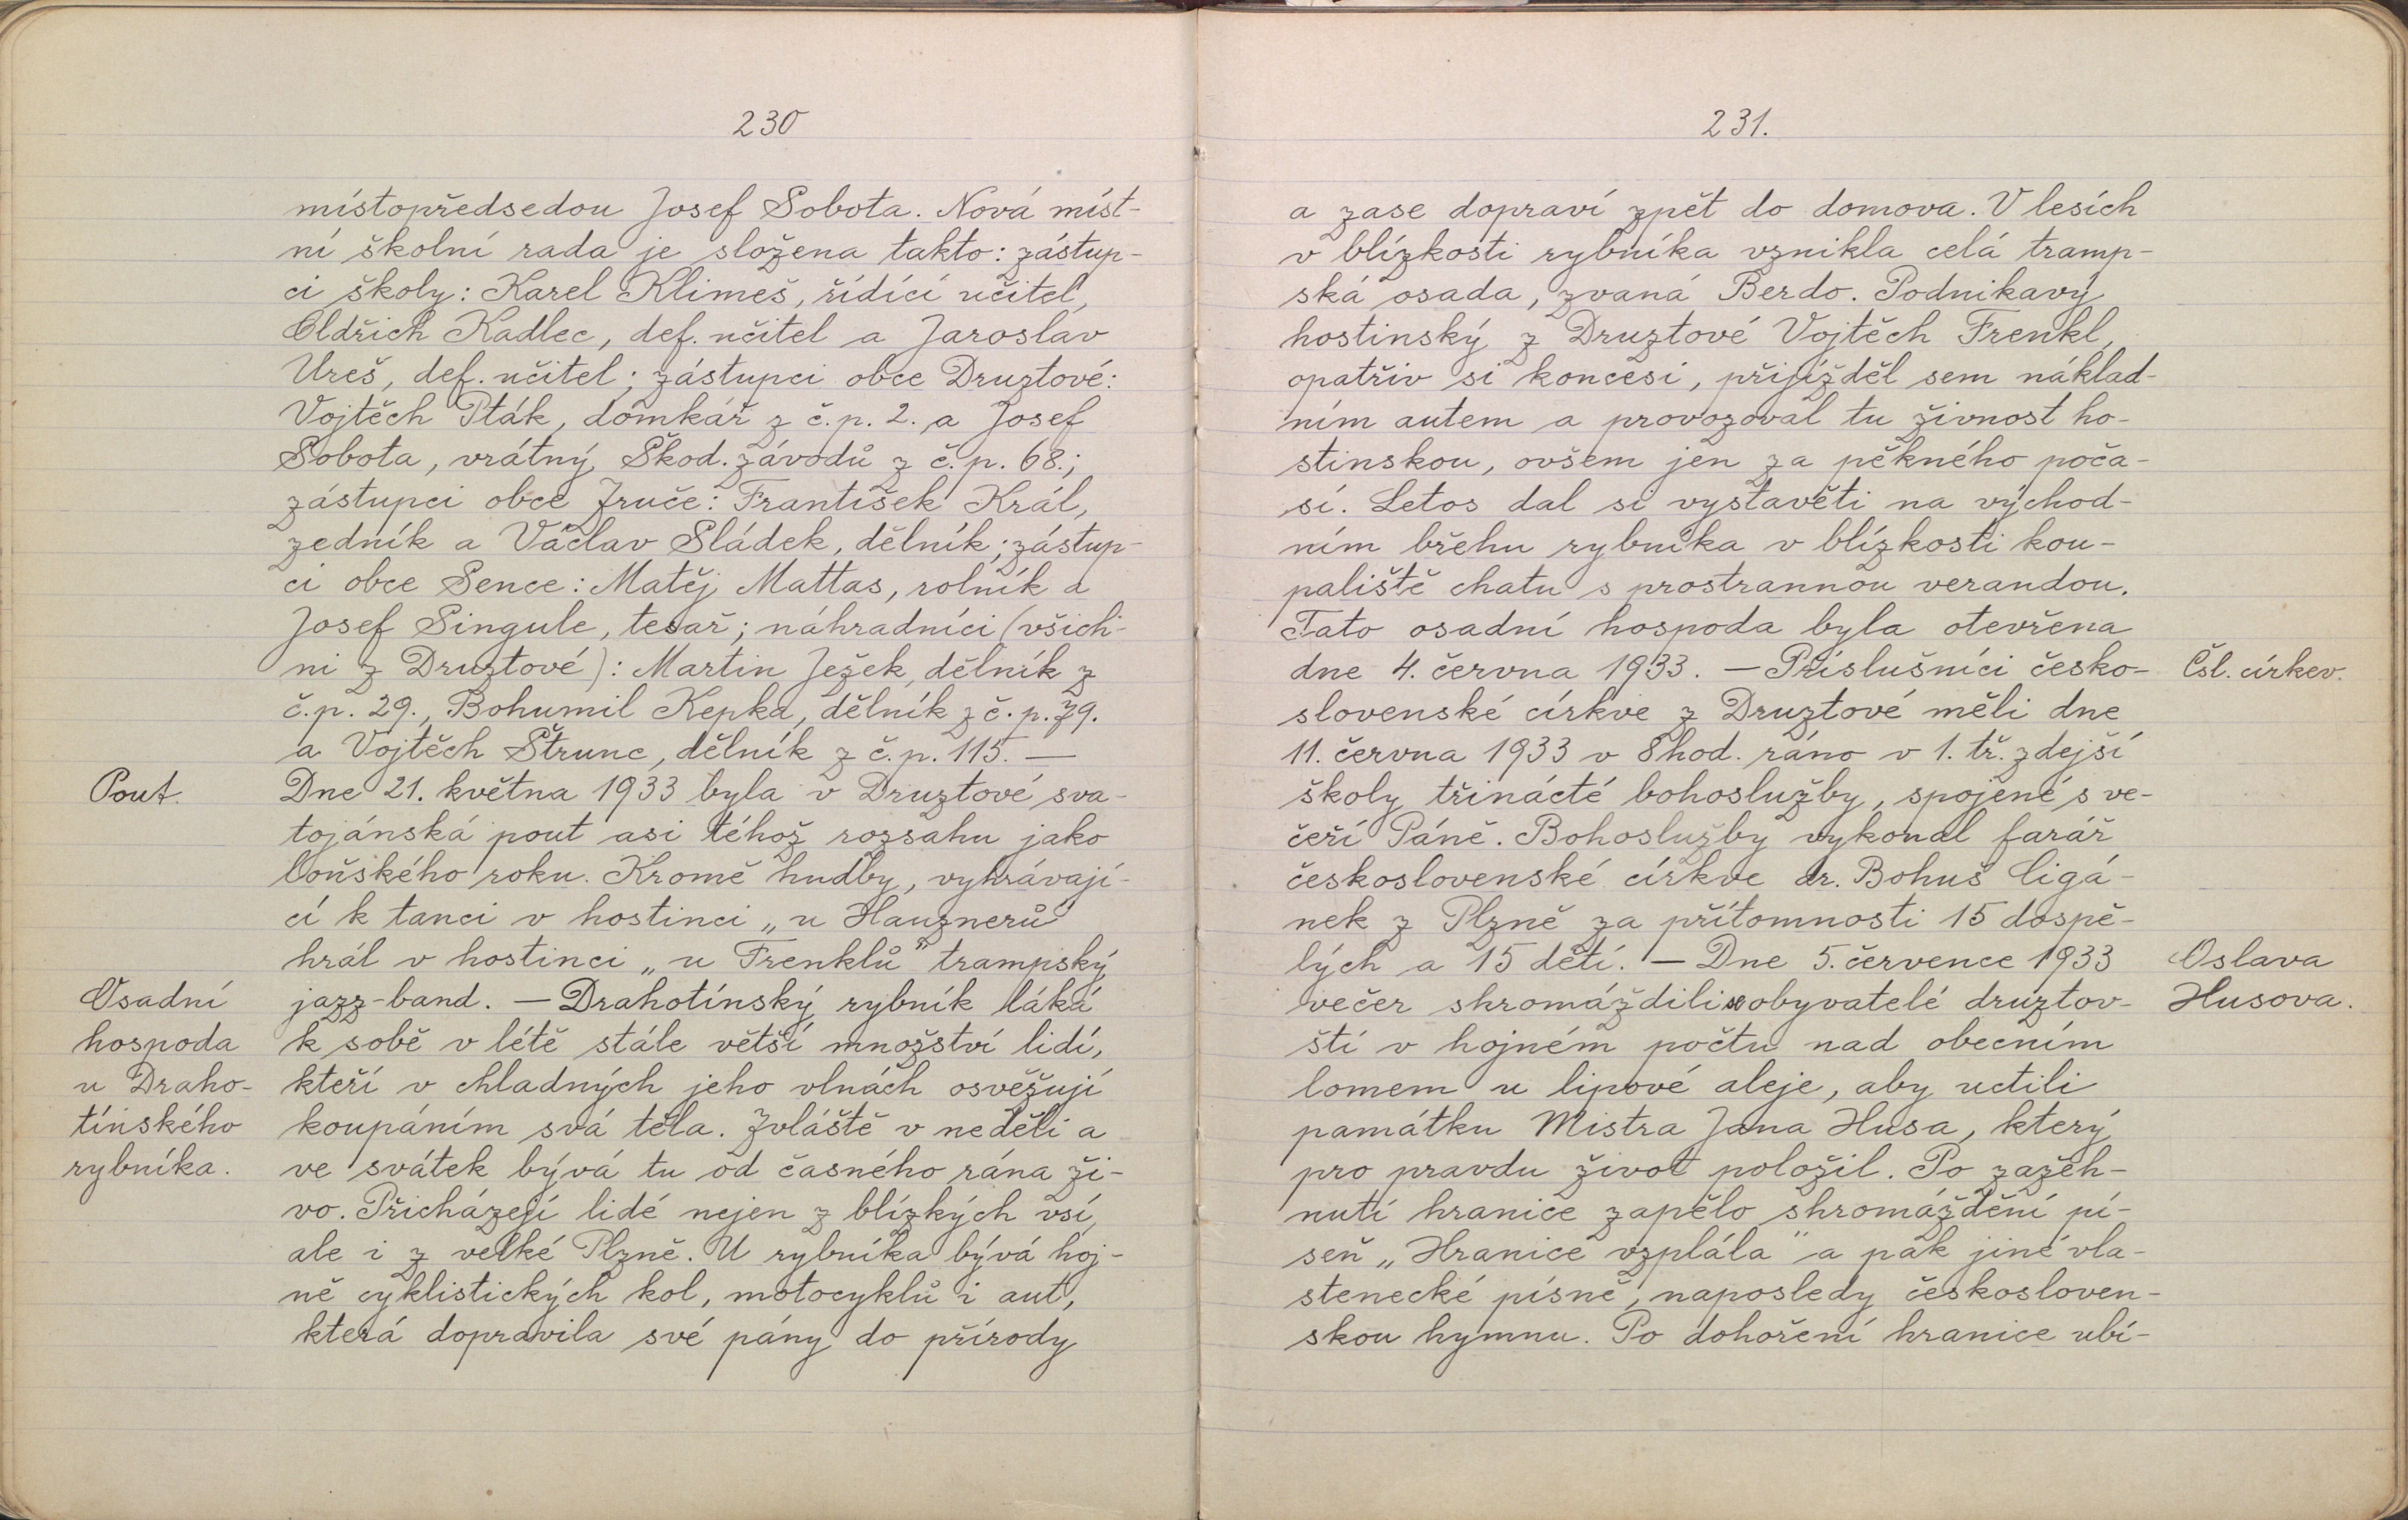 230
místopředsedou Josef Sobota. Nová míst-
ní školní rada je složena takto: zástup-
ci školy: Karel Klimeš, řídící učitel,
Oldřich Kadlec, def. učitel a Jaroslav
Ureš, def. učitel; zástupci obce Druztové:
Vojtěch Pták, domkář z č.p. 2. a Josef
Sobota, vrátný Škod. závodů z č.p. 68.;
zástupci obce Zruče: František Král,
zedník a Václav Sládek, dělník; zástup-
ci obce Sence: Matěj Mattas, rolník a
Josef Singule, tesař; náhradníci (všich-
ni z Druztové): Martin Ježek, dělník z
č.p. 29., Bohumil Kepka, dělník z č.p. 79.
a Vojtěch Štrunc, dělník z č.p. 115. —
Pout.
Dne 21. května 1933 byla v Druztové sva-
tojánská pout asi téhož rozsahu jako
loňského roku. Kromě hudby, vyhrávají-
cí k tanci v hostinci „u Hauznerů"
hrál v hostinci „u Frenklů" trampský
Osadní
hospoda
u Draho-
tínského
rybníka.
jazz-band. — Drahotínský rybník láká
k sobě v létě stále větší množství lidí,
kteří v chladných jeho vlnách osvěžují
koupáním svá těla. Zvláště v neděli a
ve svátek bývá tu od časného rána ži-
vo. Přicházejí lidé nejen z blízkých vsí,
ale i z velké Plzně. U rybníka bývá hoj-
ně cyklistických kol, motocyklů i aut,
která dopravila své pány do přírody
231.
a zase dopraví zpět do domova. V lesích
v blízkosti rybníka vznikla celá tramp-
ská osada, zvaná Berdo. Podnikavý
hostinský z Druztové Vojtěch Frenkl,
opatřiv si koncesi, přijížděl sem náklad-
ním autem a provozoval tu živnost ho-
stinskou, ovšem jen za pěkného poča-
sí. Letos dal si vystavěti na východ-
ním břehu rybníka v blízkosti kou-
paliště chatu s prostrannou verandou.
Tato osadní hospoda byla otevřena
dne 4. června 1933. — Příslušníci česko-
Čsl. církev.
slovenské církve z Druztové měli dne
11. června 1933 v 8 hod. ráno v 1. tř. zdejší
školy třinácté bohoslužby, spojené s ve-
čeří Páně. Bohoslužby vykonal farář
československé církve dr. Bohuš Cigá-
nek z Plzně za přítomnosti 15 dospě-
lých a 15 dětí. — Dne 5. července 1933
Oslava
Husova.
večer shromáždili se obyvatelé druztov-
ští v hojném počtu nad obecním
lomem u lipové aleje, aby uctili
památku Mistra Jana Husa, který
pro pravdu život položil. Po zažeh-
nutí hranice zapělo shromáždění pí-
seň „Hranice vzplála" a pak jiné vla-
stenecké písně, naposledy českosloven-
skou hymnu. Po dohoření hranice ubí-